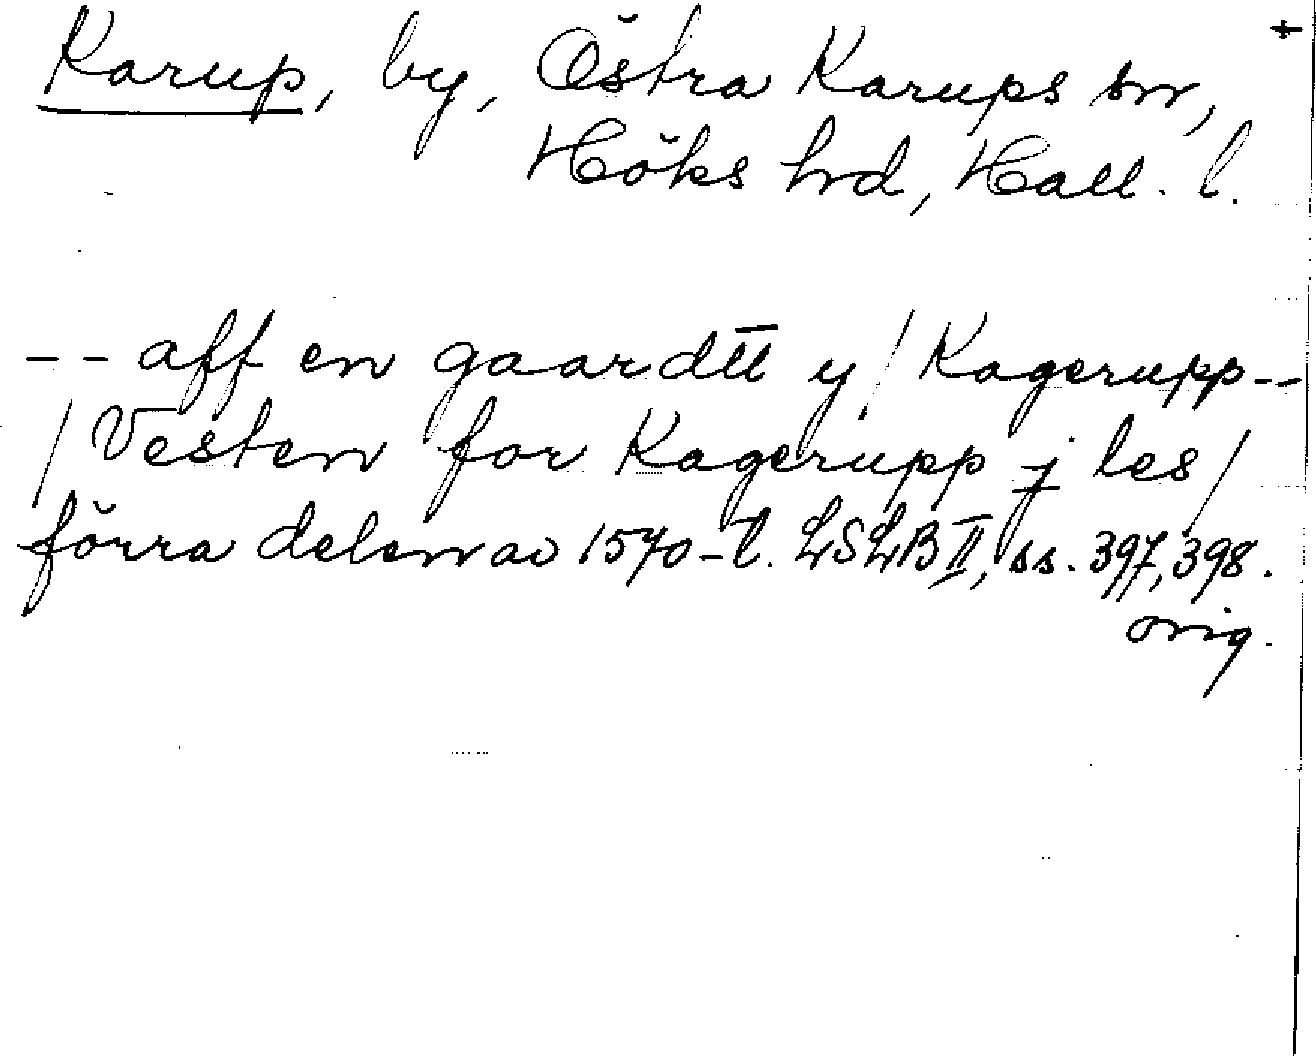 +
Karup, by, Östra Karups sn,
Höks hrd, Hall. l.
-- aff en gaardtt y / Kagerupp --
/ Vesten for Kagerupp j les /
förra delen av 1570-t. LSLB II, ss. 397, 398.
orig.